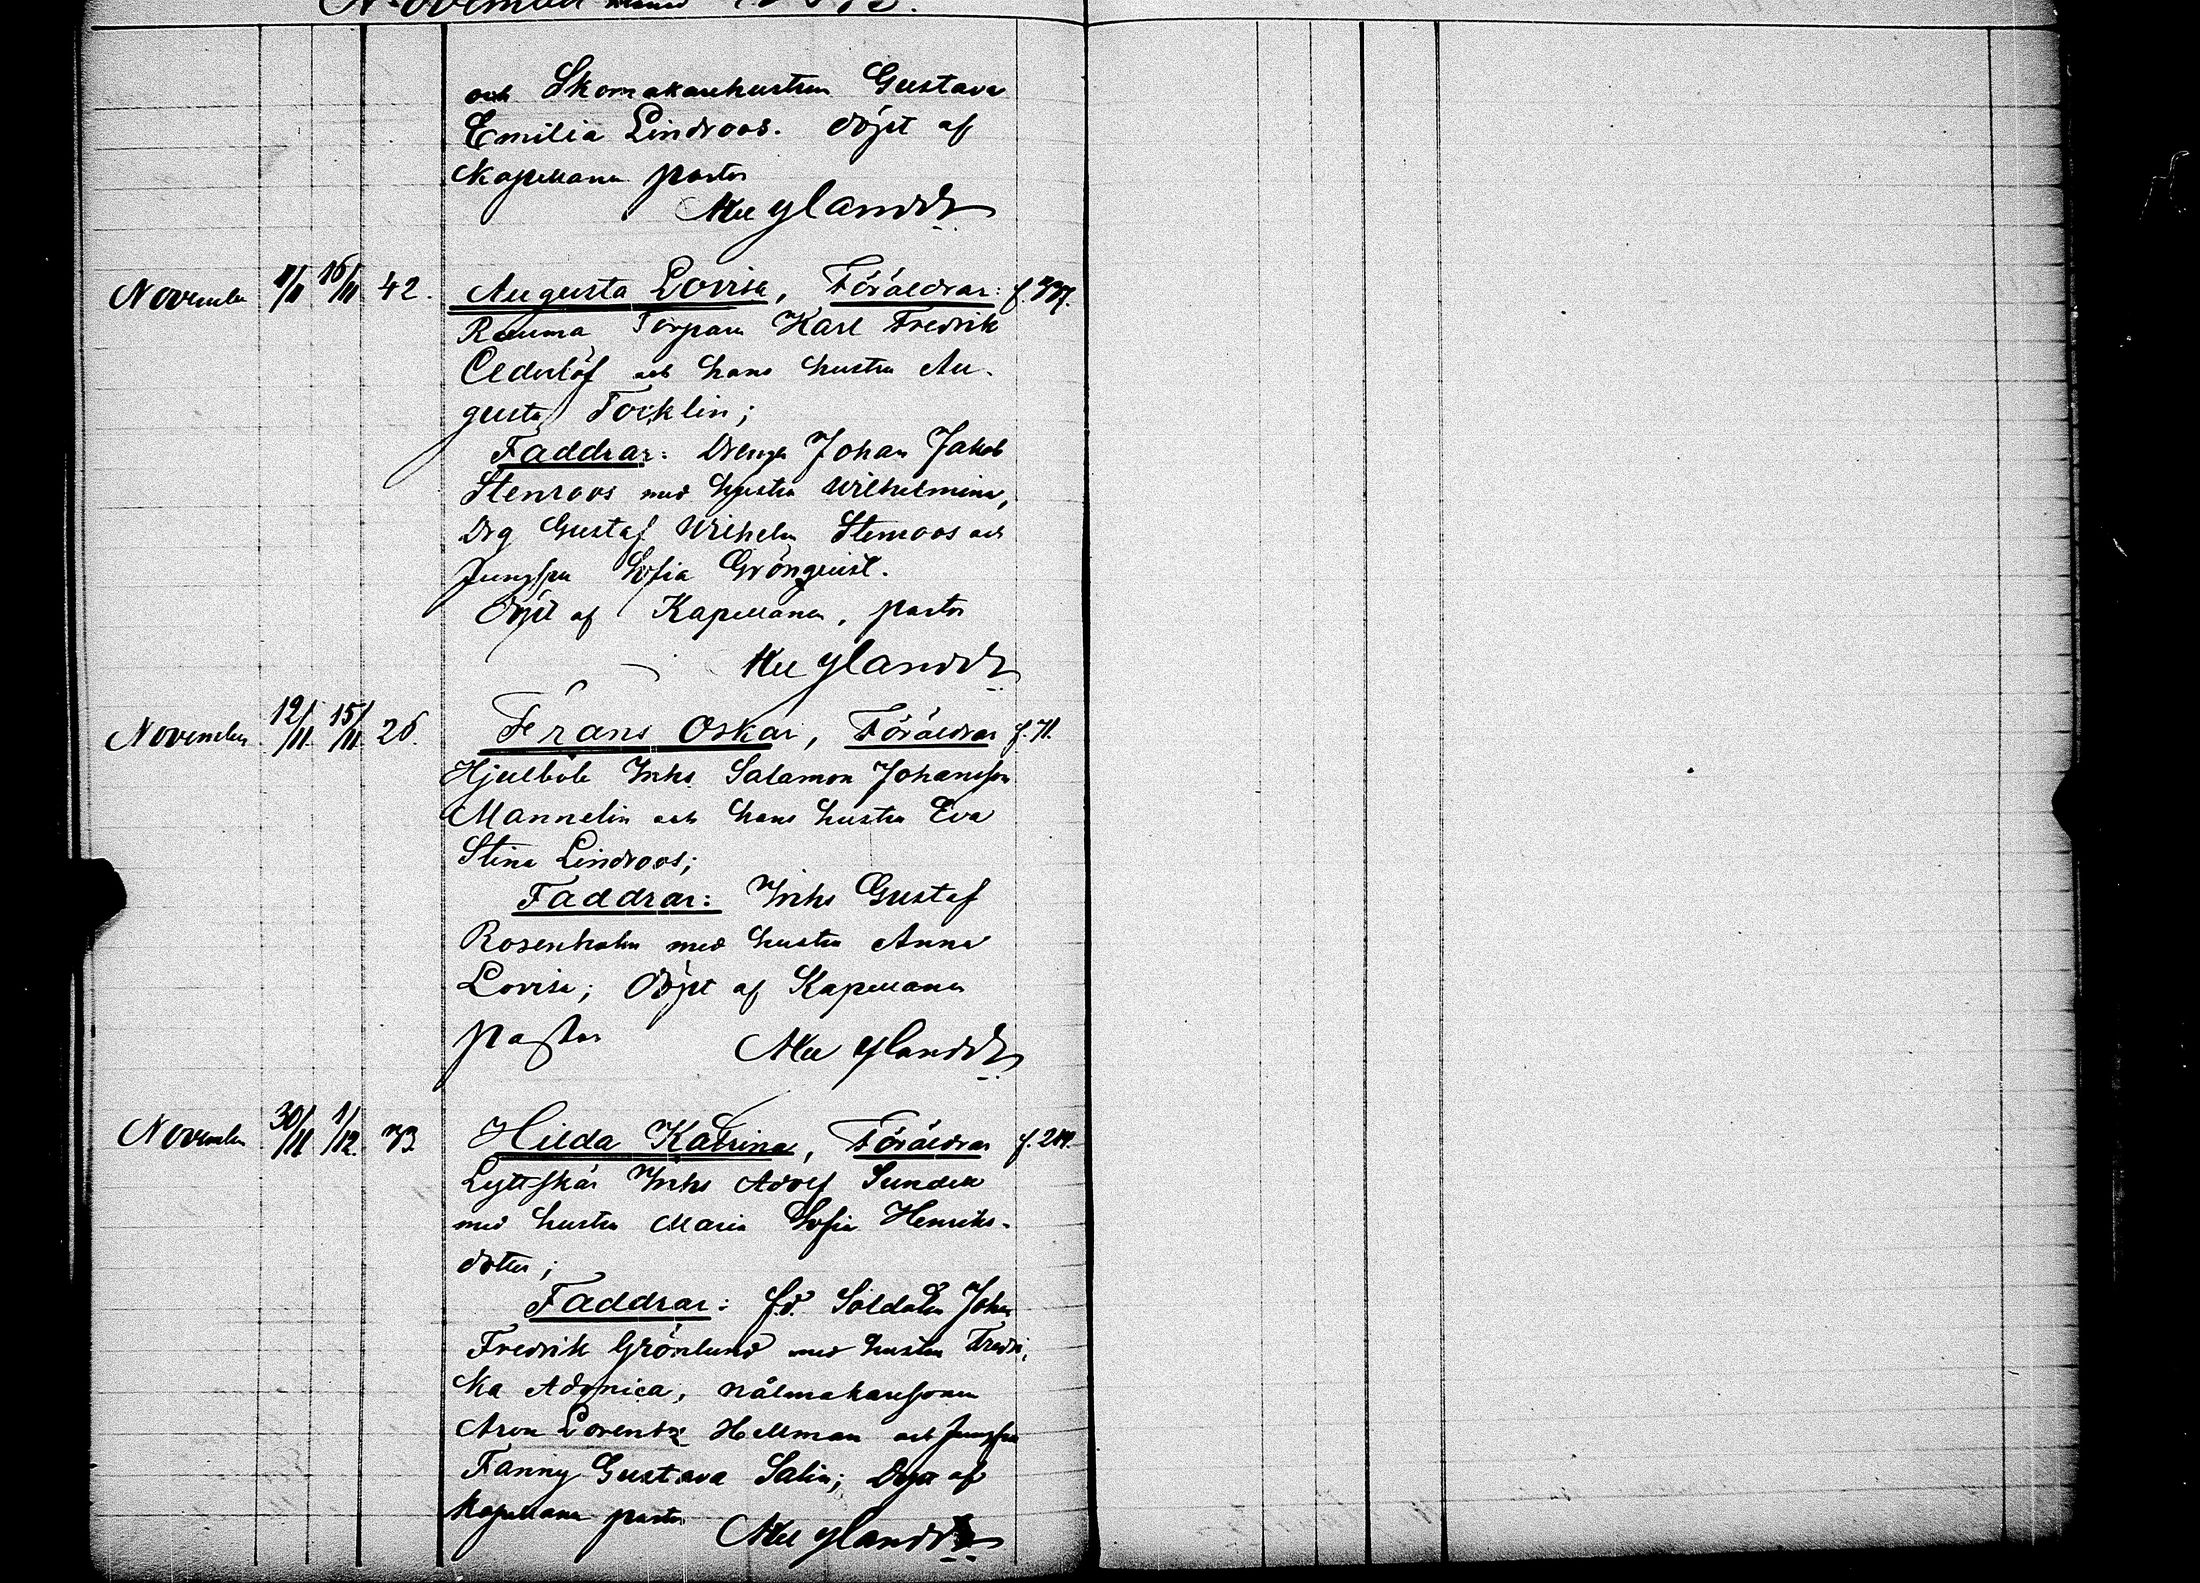 och Skomakarehustrun Gustava
Emilia Lindroos. döpt af
Kapellanen pastor
Nylander
November 16/11 42. Augusta Lovisa, Föräldrar:
Rauma Torparn Karl Fredrik
Cederlöf och hans hustru Au-
gusta Tocklin;
Faddrar: Drengn Johan Jakob
Stenroos med hustru Wilhelmina,
Drg Gustaf Wilhelm Stenroos och
Jungfru Sofia Grönqvist.
Döpt af Kapellanen, pastor
Nylander
November 12/11. 15/11. 26. Frans Oskar, Föräldrar f. 71.
Hjulböle Inhs Salamon Johansson
Mannelin och hans hustru Eva
Stina Lindroos;
Faddrar: Inhs Gustaf
Rosenholm med hustru Anna
Lovisa; Döpt af Kapellanen
pastor Nylander
November 30/11. 1/12. 73 Hilda Katrina, Föräldrar
Lyttskär Inhs Adolf Sundell
med hustru Maria Sofia Henriks-
dotter;
Faddrar: f.d. Soldaten Johan
Fredrik Grönlund med hustru Fredri-
ka, nålmakaresonen
Aron Lorentz Hellman och Jungfru
Fanny Gustava Salin; Döpt af
Kapellanen pastor Nylander